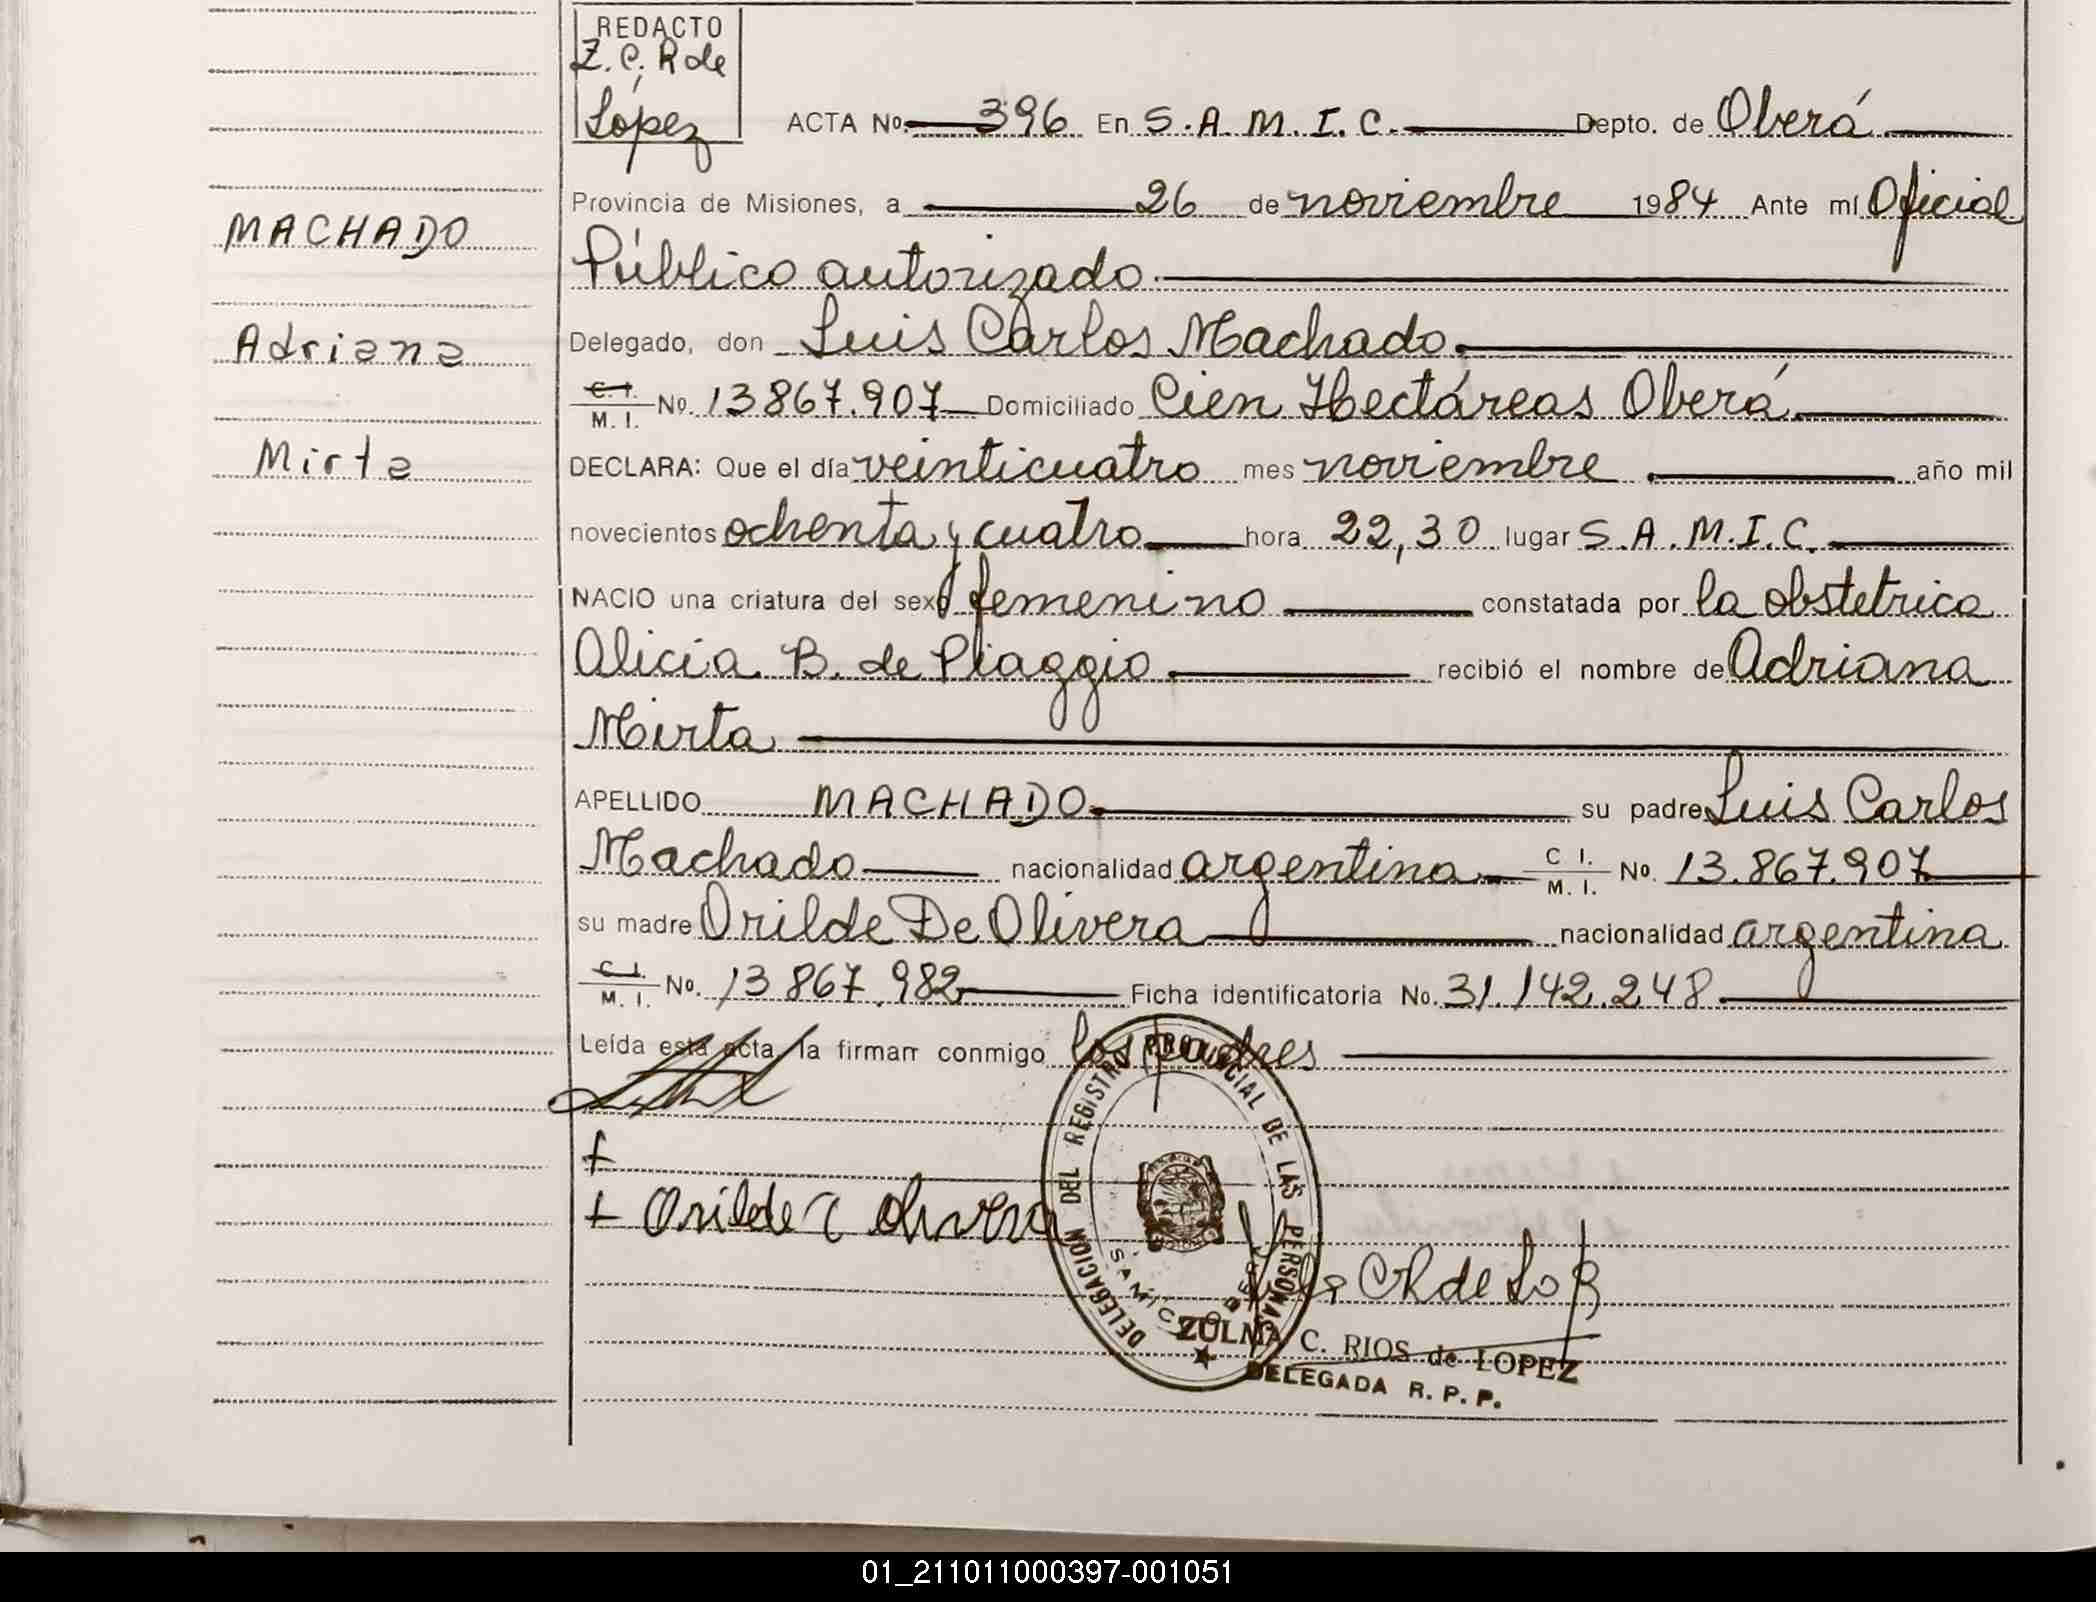 REDACTO
Z. C. R de
López
ACTA No. 396 En S. A. M. I. C. Depto. de Oberá
Provincia de Misiones, a 26 de noviembre 1984 Ante mí Oficial
MACHADO
Público autorizado.
Adriana
Delegado, don Luis Carlos Machado.
C. I. M. I. No. 13867.907 Domiciliado Cien Hectáreas Oberá.
Mirta
DECLARA: Que el día veinticuatro mes noviembre año mil
novecientos ochenta y cuatro hora 22,30 lugar S. A. M. I. C.
NACIO una criatura del sexo femenino constatada por la obstetrica
Alicia B. de Piaggio recibió el nombre de Adriana
Mirta
APELLIDO MACHADO su padre Luis Carlos
Machado nacionalidad argentina C I. M. I. No. 13.867.907
su madre Orilde De Olivera nacionalidad argentina
C I. M. I. No. 13867.982 Ficha identificatoria No. 31.142.248
Leída esta acta, la firman conmigo los padres
+
+ Orilde olivera
DELEGACION DEL REGISTRO PROVINCIAL DE LAS PERSONAS
SAMIC OBERA
ZULMA C. RIOS de LOPEZ
DELEGADA R. P. P.
01_211011000397-001051